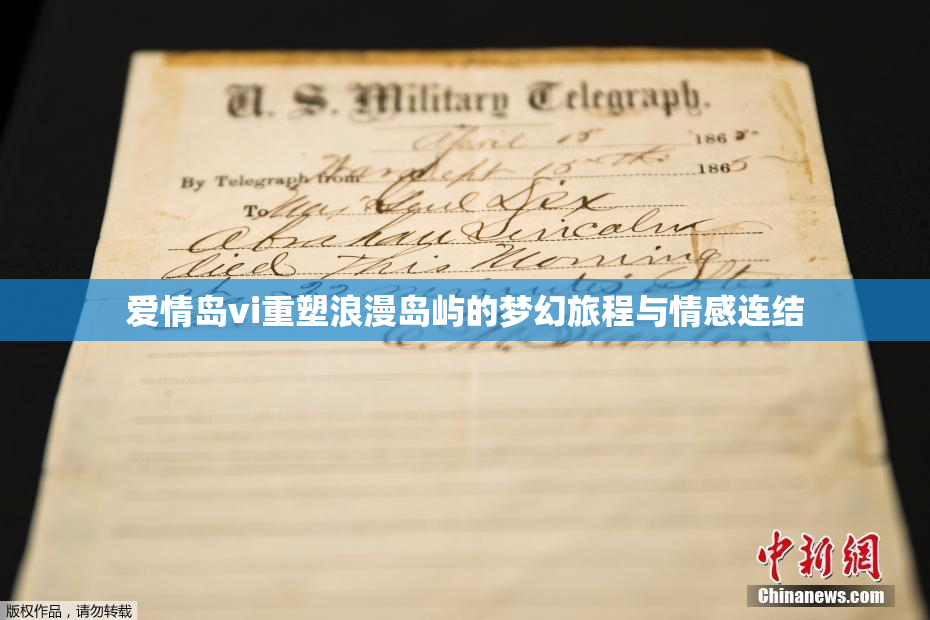 U. S. Military Telegraph.
April 15 1865
By Telegraph from War Dept 15th 1865
To Maj Genl Dix
Abraham Lincoln
died This Morning
at 22 minutes after
爱情岛vi重塑浪漫岛屿的梦幻旅程与情感连结
E. M. Stanton
中新网
Chinanews.com
版权作品，请勿转载